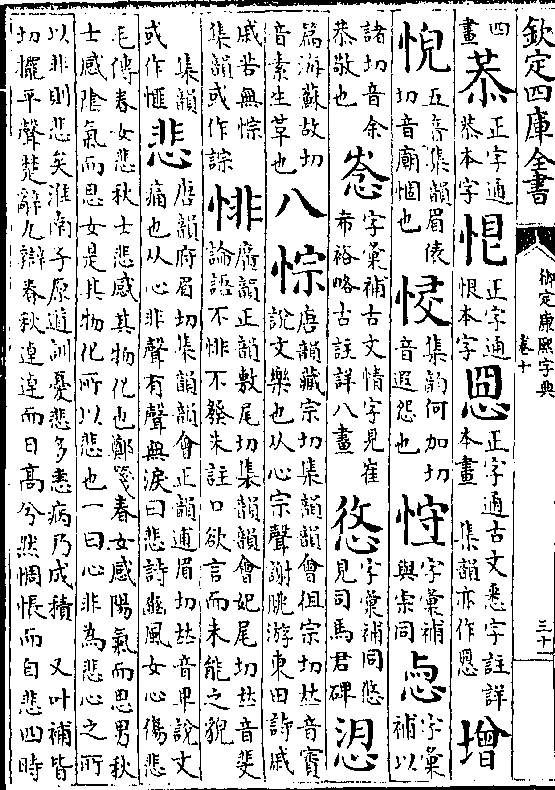 欽定四庫全書
御定康熙字典
卷十
三十
四畫
恭
正字通恭本字
正字通恨本字
恩
正字通古文悉字註詳本畫
集韻亦作恩
增
五音集韻眉俵切音廟悃也
集韵何加切音遐怨也
字彙補與崇同
字彙補以諸切音余恭敬也
字彙補古文情字見崔希裕略古註詳八畫
字彙補同悠見司馬君碑
篇海蘇故切音素生草也
八
悰
唐韻藏宗切集韻韻會徂宗切𠀤音賨說文樂也从心宗聲謝朓游東田詩戚戚苦無悰
集韻或作誴
悱
廣韻正韻敷尾切集韻韻會妃尾切𠀤音斐論語不悱不發朱註口欲言而未能之貌
集韻或作𢠿
悲
唐韻府眉切集韻韻會正韻逋眉切𠀤音卑說文痛也从心非聲有聲無淚曰悲詩豳風女心傷悲毛傳春女悲秋士悲感其物化也鄭箋春女感陽氣而思男秋士感陰氣而思女是其物化所以悲也一曰心非為悲心之所以非則悲矣淮南子原道訓憂悲多恚病乃成積
又叶補皆切擺平聲楚辭九辯春秋逴逴而日高兮然惆悵而自悲四時